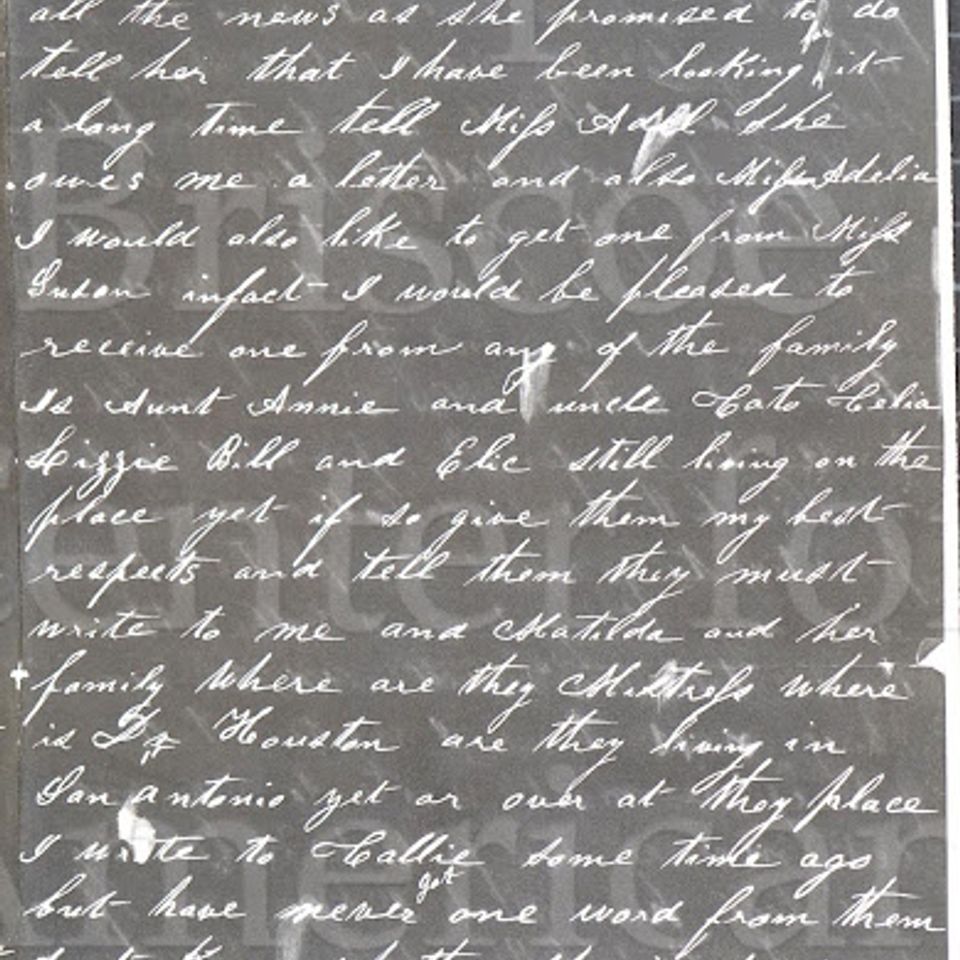 all the news as she promised to do
tell her that I have been looking for it
a long time tell Miss Adell she
owes me a letter and also Miss Adelia
I would also like to get one from Miss
Susan infact I would be pleased to
receive one from any of the family
Is Aunt Annie and uncle Cato Celia
Lizzie Bill and Elic still living on the
place yet if so give them my best
respects and tell them they must
write to me and Matilda and her
family where are they Mistress where
is Dr Houston are they living in
San antonio yet or over at they place
I write to Callie some time ago
but have never got one word from them
Briscoe
enter for
American